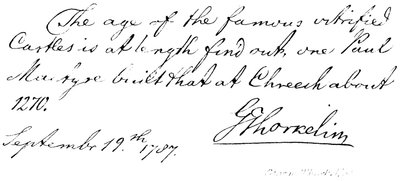 The age of the famous vitrified
Castles is at length find out, one Paul
Mactyre built that at Chreech about
1270.
September 19.th 1787.
GThorkelin